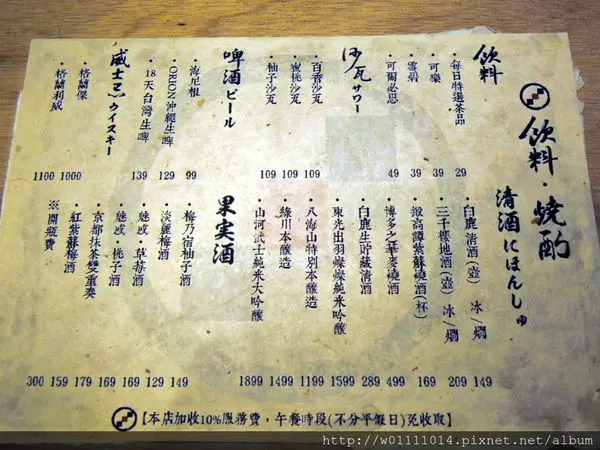 飲料・燒酌
飲料
・每日特選茶品 29
・可樂 39
・雪碧 39
・可爾必思 49
沙瓦 サワー
・百香沙瓦 109
・蜜桃沙瓦 109
・柚子沙瓦 109
啤酒 ビール
・海尼根 99
・ORION沖繩生啤 129
・18天台灣生啤 139
威士忌 ウイスキー
・格蘭傑 1000
・格蘭利威 1100
清酒にほんしゅ
・白鹿清酒(壺) 冰/燗 149
・三千櫻地酒(壺) 冰/燗 209
・鍛高譚紫蘇燒酒(杯) 169
・博多之華麥燒酒 499
・白鹿生貯藏清酒 289
・東光出羽燦燦純米吟釀 1599
・八海山特別本釀造 1199
・綠川本釀造 1499
・山河武士純米大吟釀 1899
果実酒
・梅乃宿柚子酒 149
・淡麗梅酒 129
・魅惑・草莓酒 169
・魅惑・桃子酒 169
・京都抹茶雙重奏 179
・紅紫蘇梅酒 159
※開瓶費 300
【本店加收10%服務費，午餐時段(不分平假日)免收取】
http://w01111014.pixnet.net/album